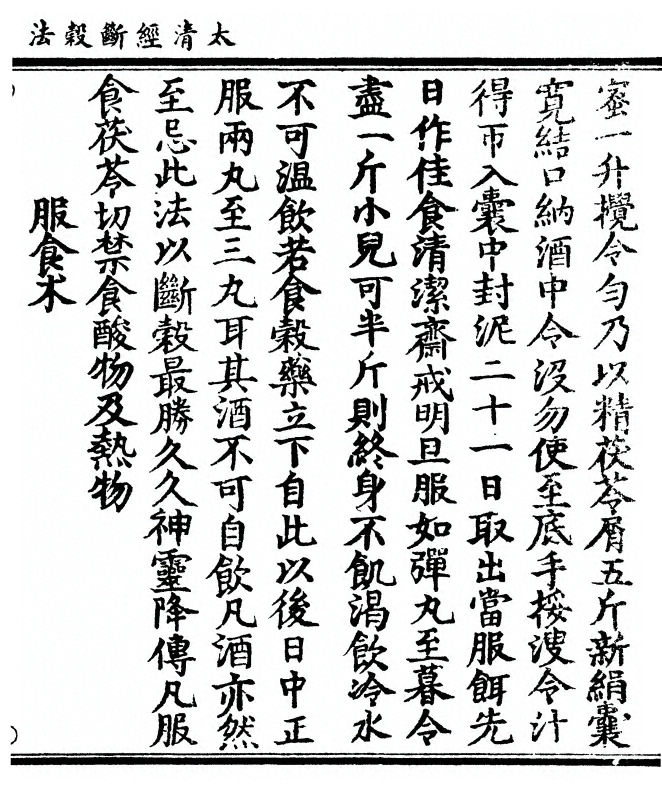 太清經斷穀法
蜜一升攪令勻乃以精茯苓屑五斤新絹囊
寬結口納酒中令沒勿使至底手挼溲令汁
得帀入囊中封泥二十一日取出當服餌先
日作佳食清潔齋戒明旦服如彈丸至暮令
盡一斤小兒可半斤則終身不飢渴飲冷水
不可溫飲若食穀藥立下自此以後日中正
服兩丸至三丸耳其酒不可自飲凡酒亦然
至忌此法以斷穀最勝久久神靈降傳凡服
食茯苓切禁食酸物及熱物
服食朮